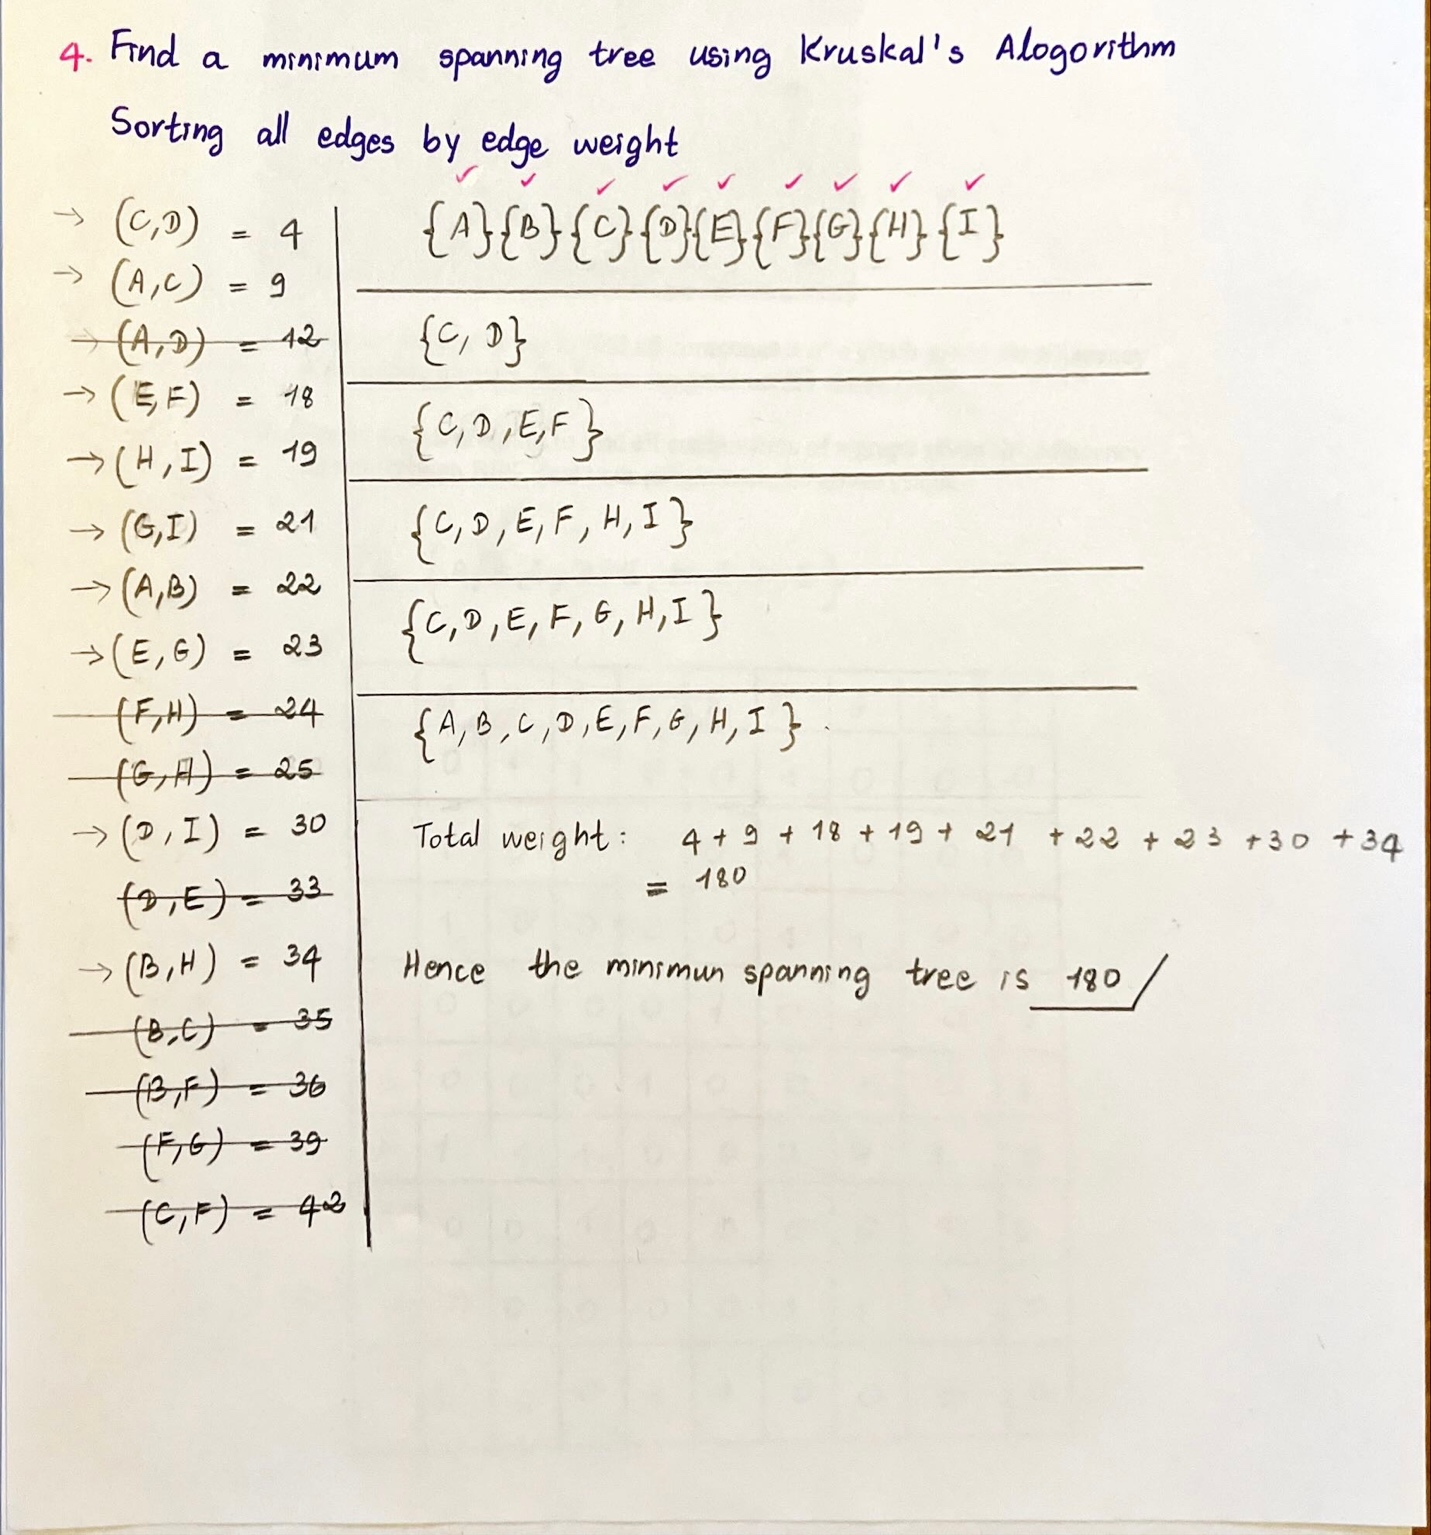 4. Find a minimum spanning tree using Kruskal's Alogorithm
Sorting all edges by edge weight
→ (C,D) = 4
→ (A,C) = 9
→ (A,D) = 12
→ (E,F) = 18
→ (H,I) = 19
→ (G,I) = 21
→ (A,B) = 22
→ (E,G) = 23
(F,H) = 24
(G,H) = 25
→ (D,I) = 30
(D,E) = 33
→ (B,H) = 34
(B,C) = 35
(B,F) = 36
(F,G) = 39
(C,F) = 42
{A}{B}{C}{D}{E}{F}{G}{H}{I}
{C, D}
{C,D,E,F}
{C,D,E,F,H,I}
{C,D,E,F,G,H,I}
{A,B,C,D,E,F,G,H,I}.
Total weight: 4 + 9 + 18 + 19 + 21 + 22 + 23 + 30 + 34
= 180
Hence the minimun spanning tree is 180/